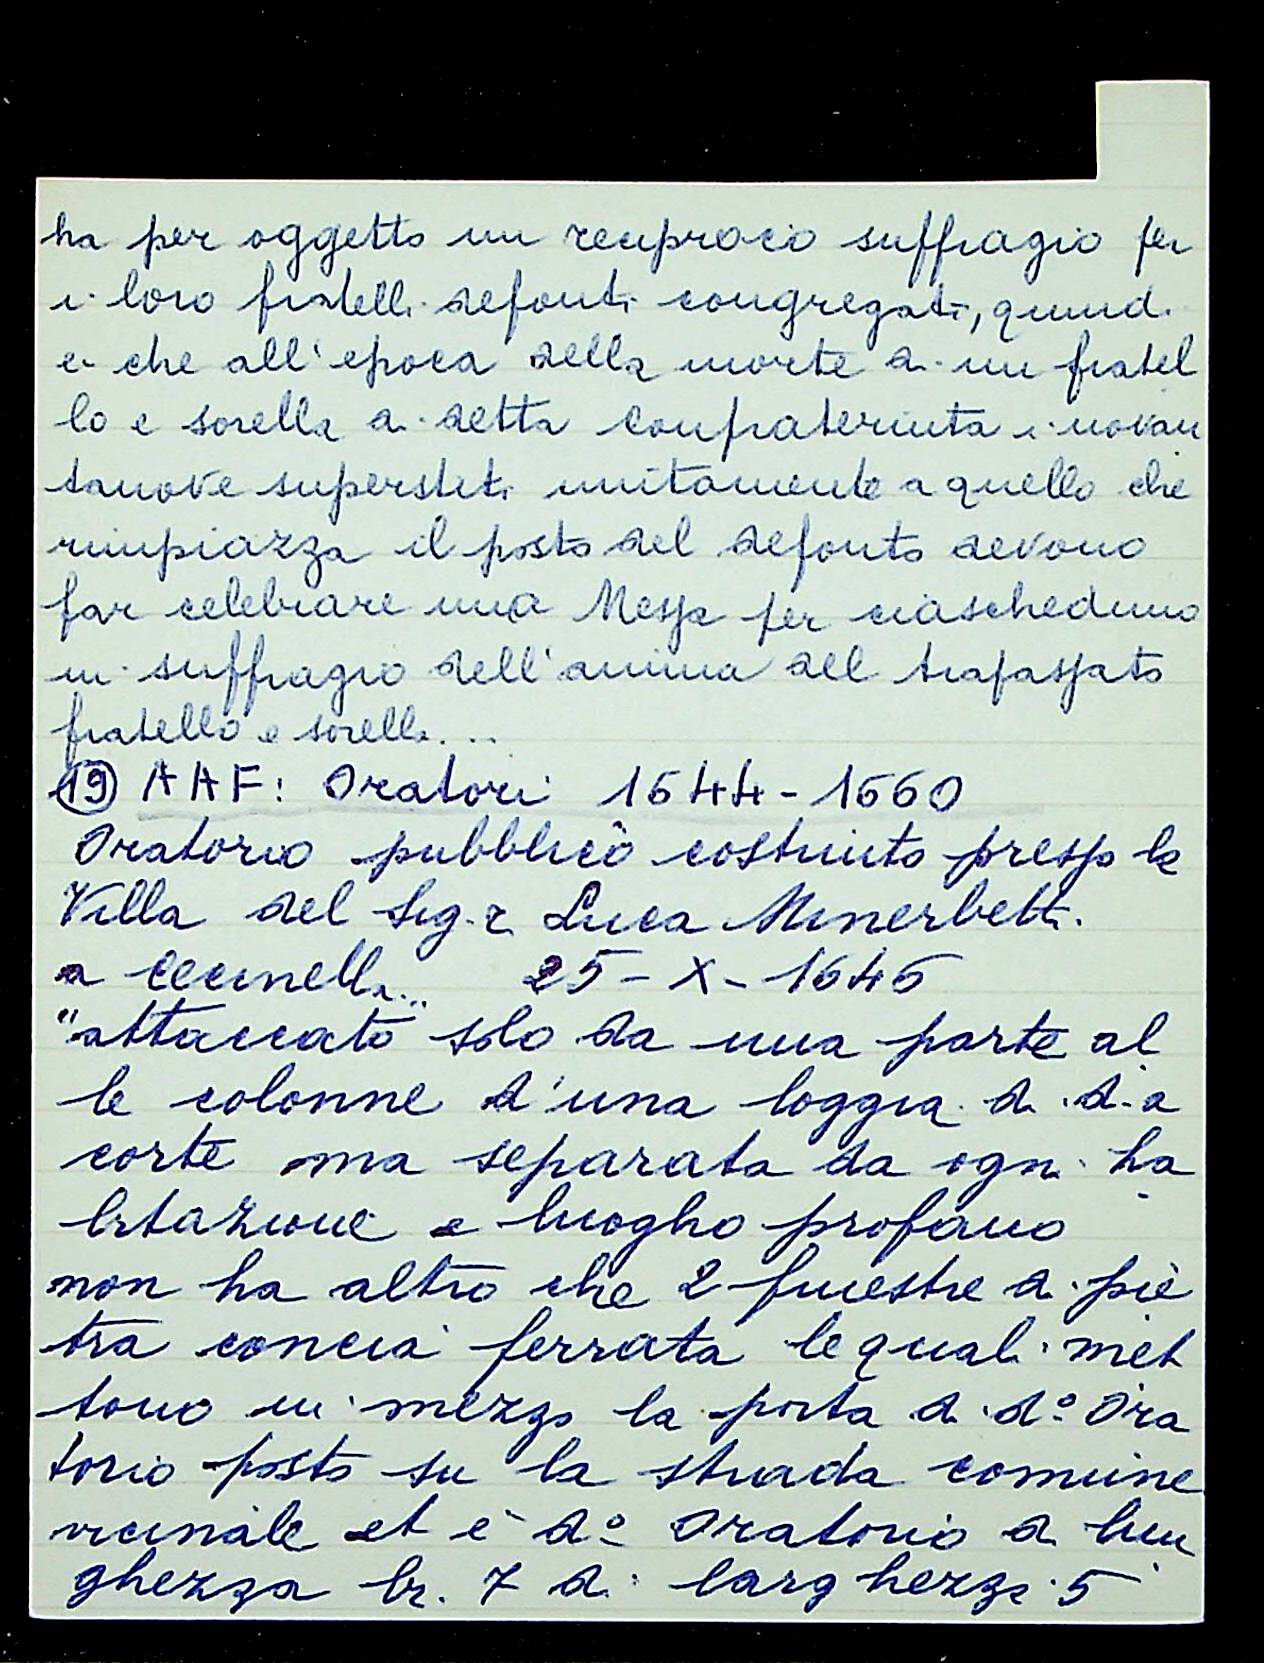 ha per oggetto un reciproco suffragio per
i loro fratelli defonti congregati, quind
e che all'epoca della morte di un fratel
lo e sorella di detta confraternita i novan
tanove superstiti unitamente a quello che
rimpiazza il posto del defonto devono
far celebrare una Messa per ciascheduno
in suffragio dell'anima del trapassato
fratello e sorella...
(19) AAF: Oratori 1644-1660
Oratorio pubblico costruito presso la
Villa del Sig.r Luca Minerbetti
a Cecinella... 25-X-1645
"attaccato solo da una parte al
le colonne d'una loggia di d.a
corte ma separata da ogni ha
bitazione e luogho profano
non ha altro che 2 finestre di pie
tra concia ferrata le quali met
tono in mezzo la porta di d.º Ora
torio posto su la strada comune
vicinale et è d.º Oratorio di lun
ghezza br. 7 di larghezza 5